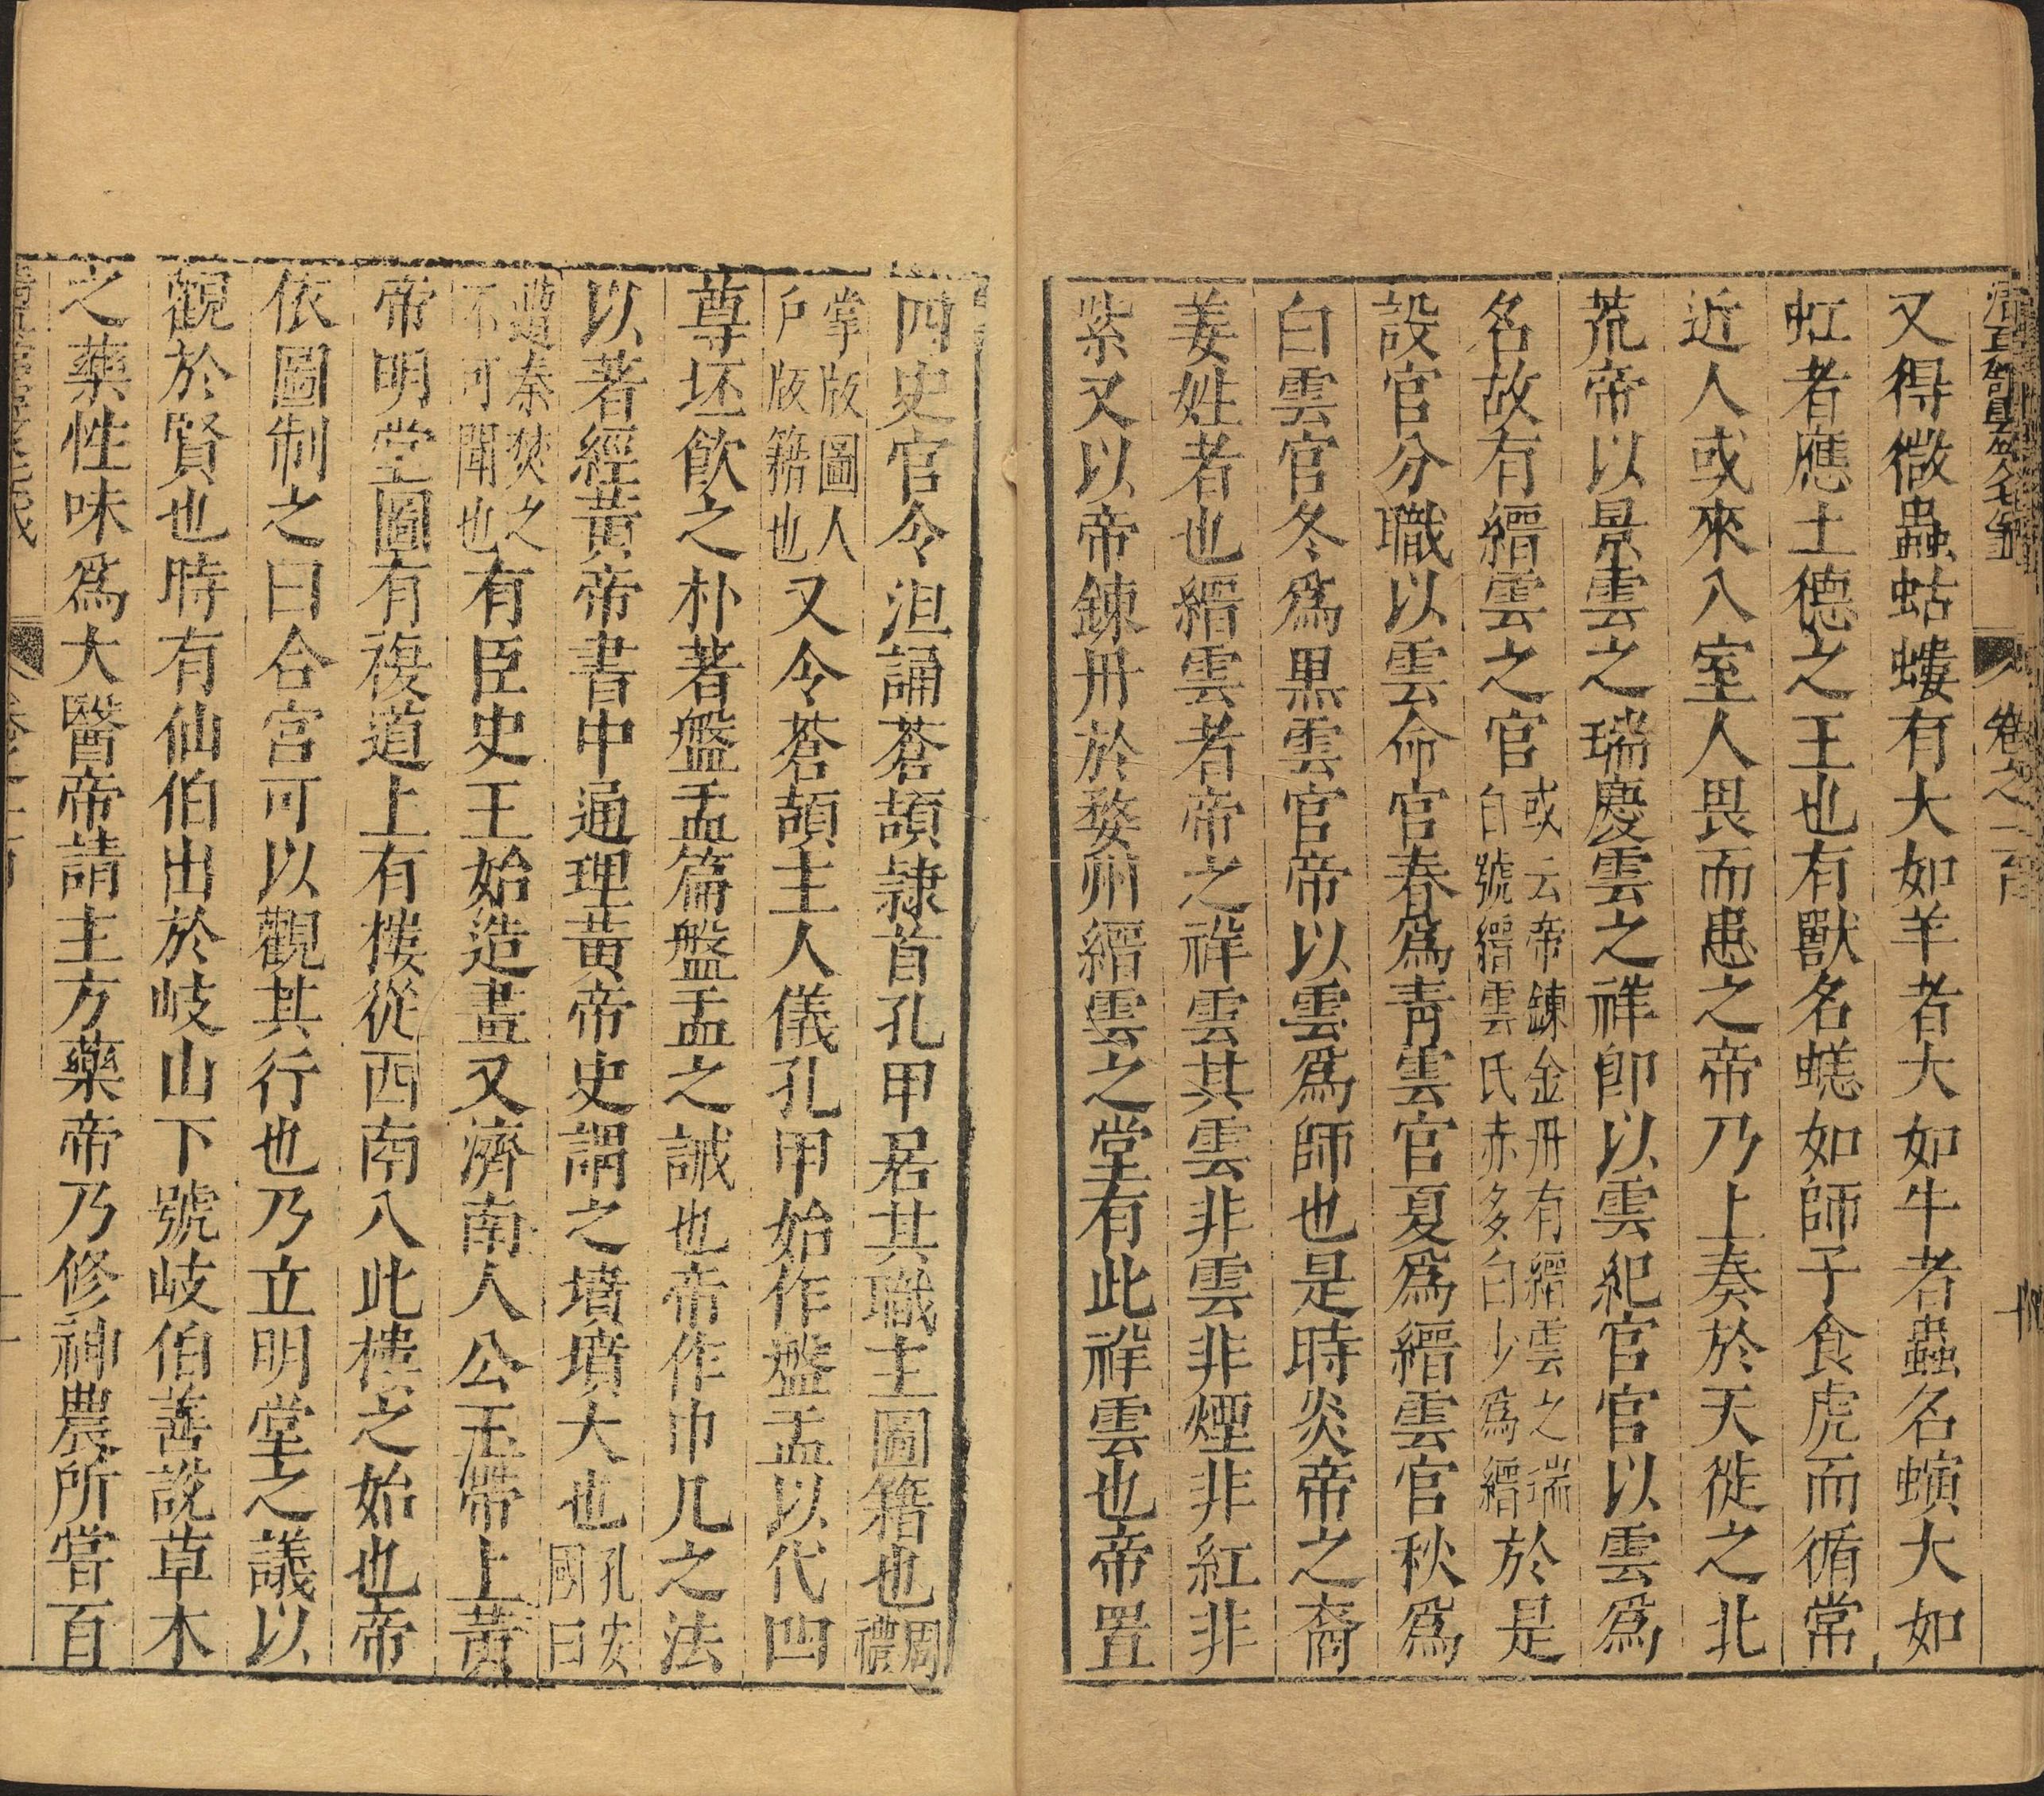 又得微蟲蛄螻有大如羊者大如牛者蟲名螾大如
虹者應土德之王也有獸名㺔如師子食虎而循常
近人或來入室人畏而患之帝乃上奏於天徙之北
荒帝以景雲之瑞慶雲之祥即以雲紀官官以雲爲
名故有縉雲之官
或云帝鍊金丹有縉雲之瑞
自號縉雲氏赤多白少爲縉
於是
設官分職以雲命官春爲青雲官夏爲縉雲官秋爲
白雲官冬爲黒雲官帝以雲爲師也是時炎帝之裔
姜姓者也縉雲者帝之祥雲其雲非雲非煙非紅非
紫又以帝鍊丹於婺州縉雲之堂有此祥雲也帝置
四史官令沮誦蒼頡隸首孔甲居其職主圖籍也
周
禮
掌版圖人
戶版籍也
又令蒼頡主人儀孔甲始作盤盂以代凹
尊坯飲之朴著盤盂篇盤盂之誡也帝作巾几之法
以著經黃帝書中通理黃帝史謂之墳墳大也
孔安
國曰
遭秦焚之
不可聞也
有臣史王始造畫又濟南人公玉帶上黃
帝明堂圖有複道上有樓從西南入此樓之始也帝
依圖制之曰合宮可以觀其行也乃立明堂之議以
觀於賢也時有仙伯出於岐山下號岐伯善說草木
之藥性味爲大醫帝請主方藥帝乃修神農所嘗百